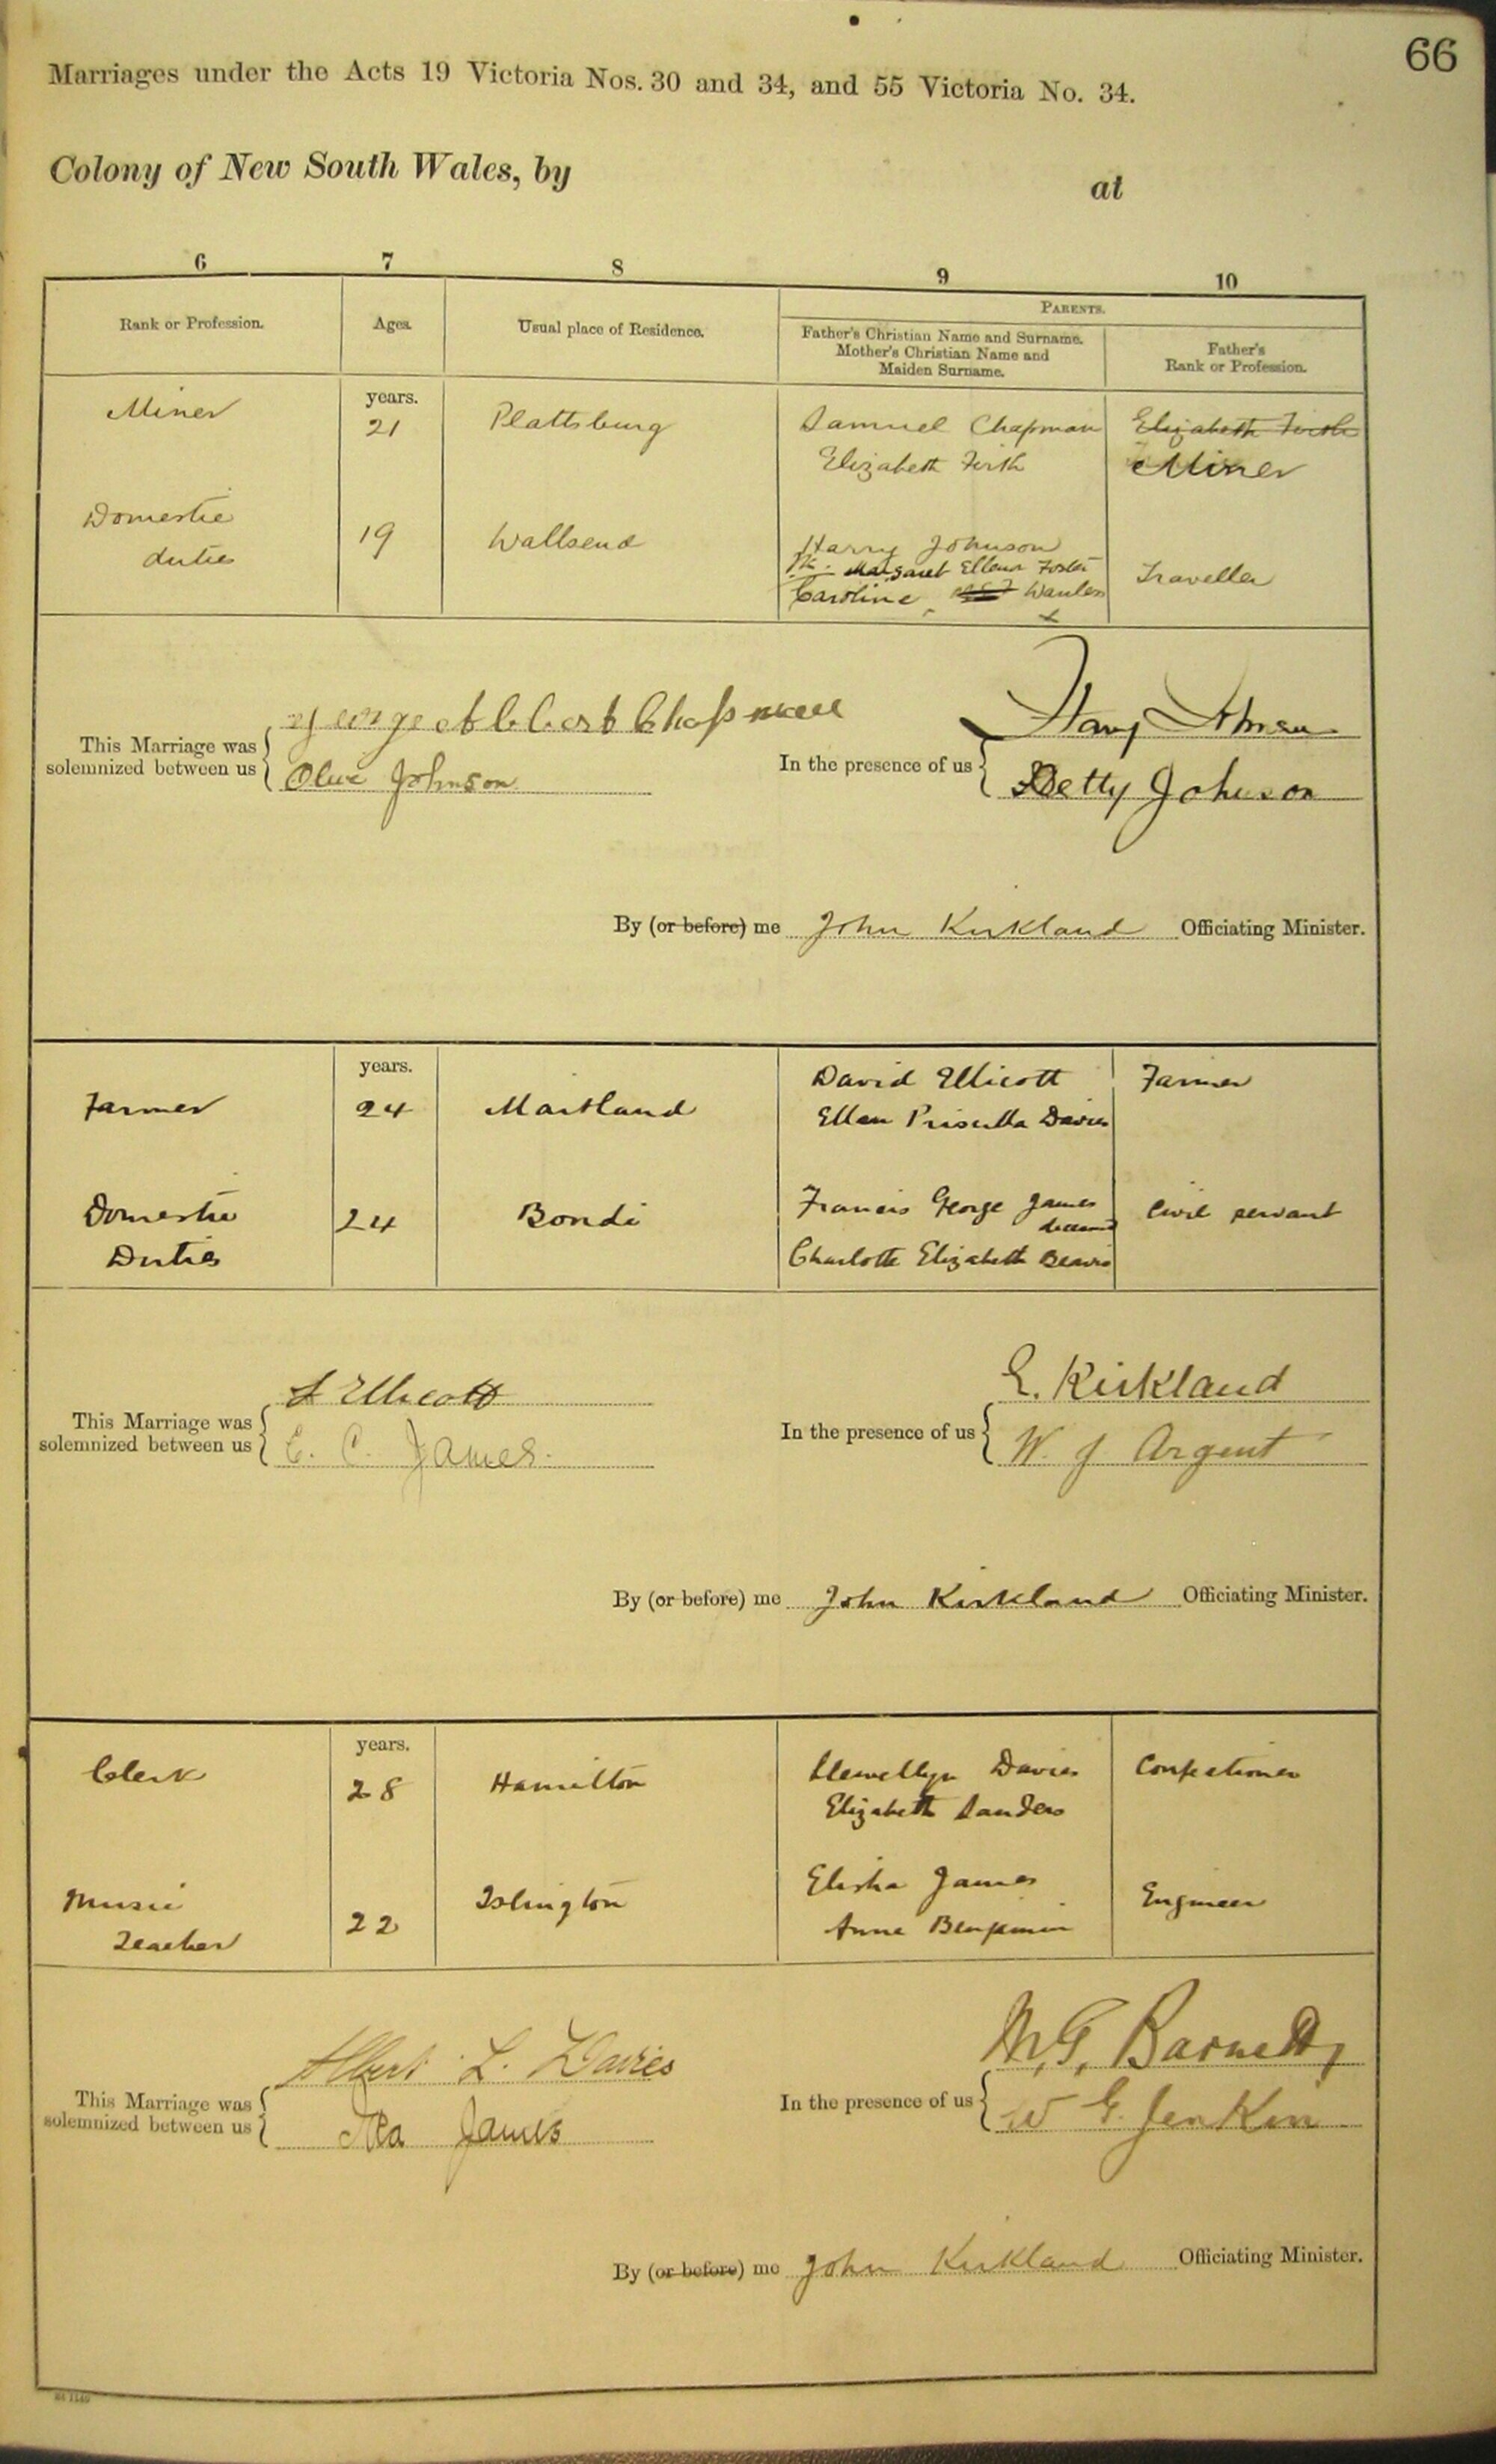 66
Marriages under the Acts 19 Victoria Nos. 30 and 34, and 55 Victoria No. 34.
Colony of New South Wales, by at
6 7 8 9 10
Rank or Profession. Ages. Usual place of Residence. PARENTS.
Father's Christian Name and Surname.
Mother's Christian Name and
Maiden Surname.
Father's
Rank or Profession.
Miner years. 21 Plattsburg Samuel Chapman Elizabeth Firth
Elizabeth Firth Miner
Domestic
duties 19 Wallsend Harry Johnson
Margaret Ellenor Foster
Caroline Wanless Traveller
George Albert Chapman
This Marriage was
solemnized between us
Olive Johnson
Harry Johnson
In the presence of us
Betty Johnson
By (or before) me John Kirkland Officiating Minister.
years.
Farmer 24 Maitland David Ellicott Farmer
Ellen Priscilla Davies
Domestic
Duties 24 Bondi Francis George James Civil servant
deceased
Charlotte Elizabeth
Ellicott
This Marriage was
solemnized between us
C. James.
E. Kirkland
In the presence of us
W. J Argent
By (or before) me John Kirkland Officiating Minister.
years.
Clerk 28 Hamilton Llewellyn Davies Confectioner
Elizabeth Sanders
Music
Teacher 22 Islington Elisha James Engineer
Anne Benjamin
Albert L. Davies
This Marriage was
solemnized between us
James
M. G. Barnett
In the presence of us
W G. Jenkin
By (or before) me John Kirkland Officiating Minister.